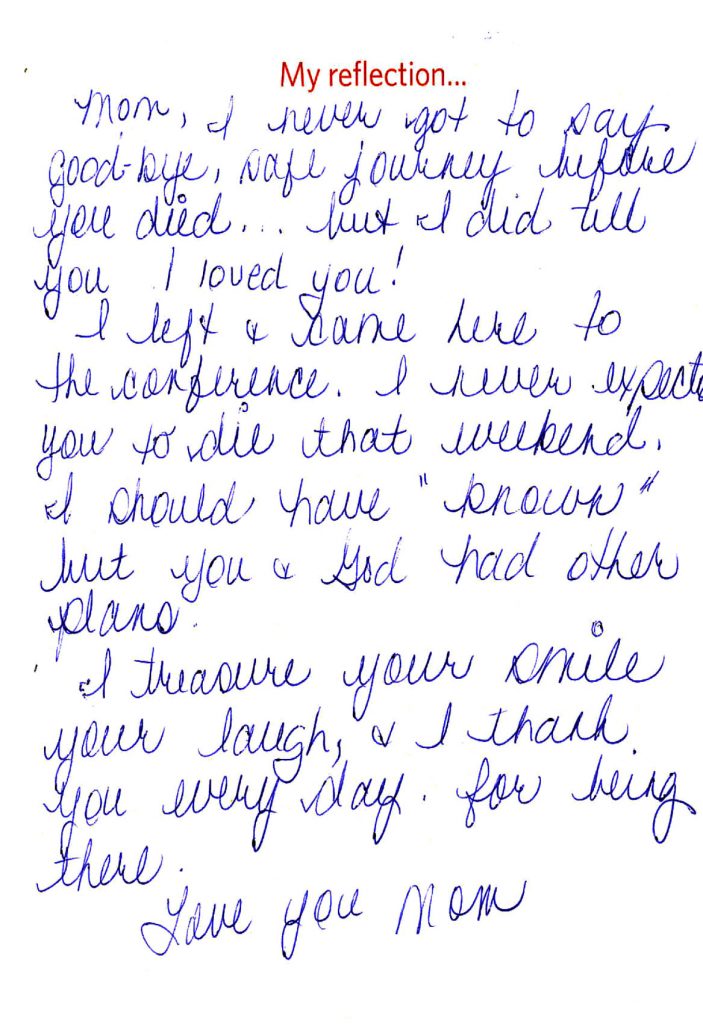 My reflection...
Mom, I never got to say
good-bye, safe journey before
you died... but I did tell
you I loved you!
I left & came here to
the conference. I never expect
you to die that weekend.
I should have "known"
but you & God had other
plans.
I treasure your smile
your laugh, & I thank
you every day. for being
there.
Love you Mom